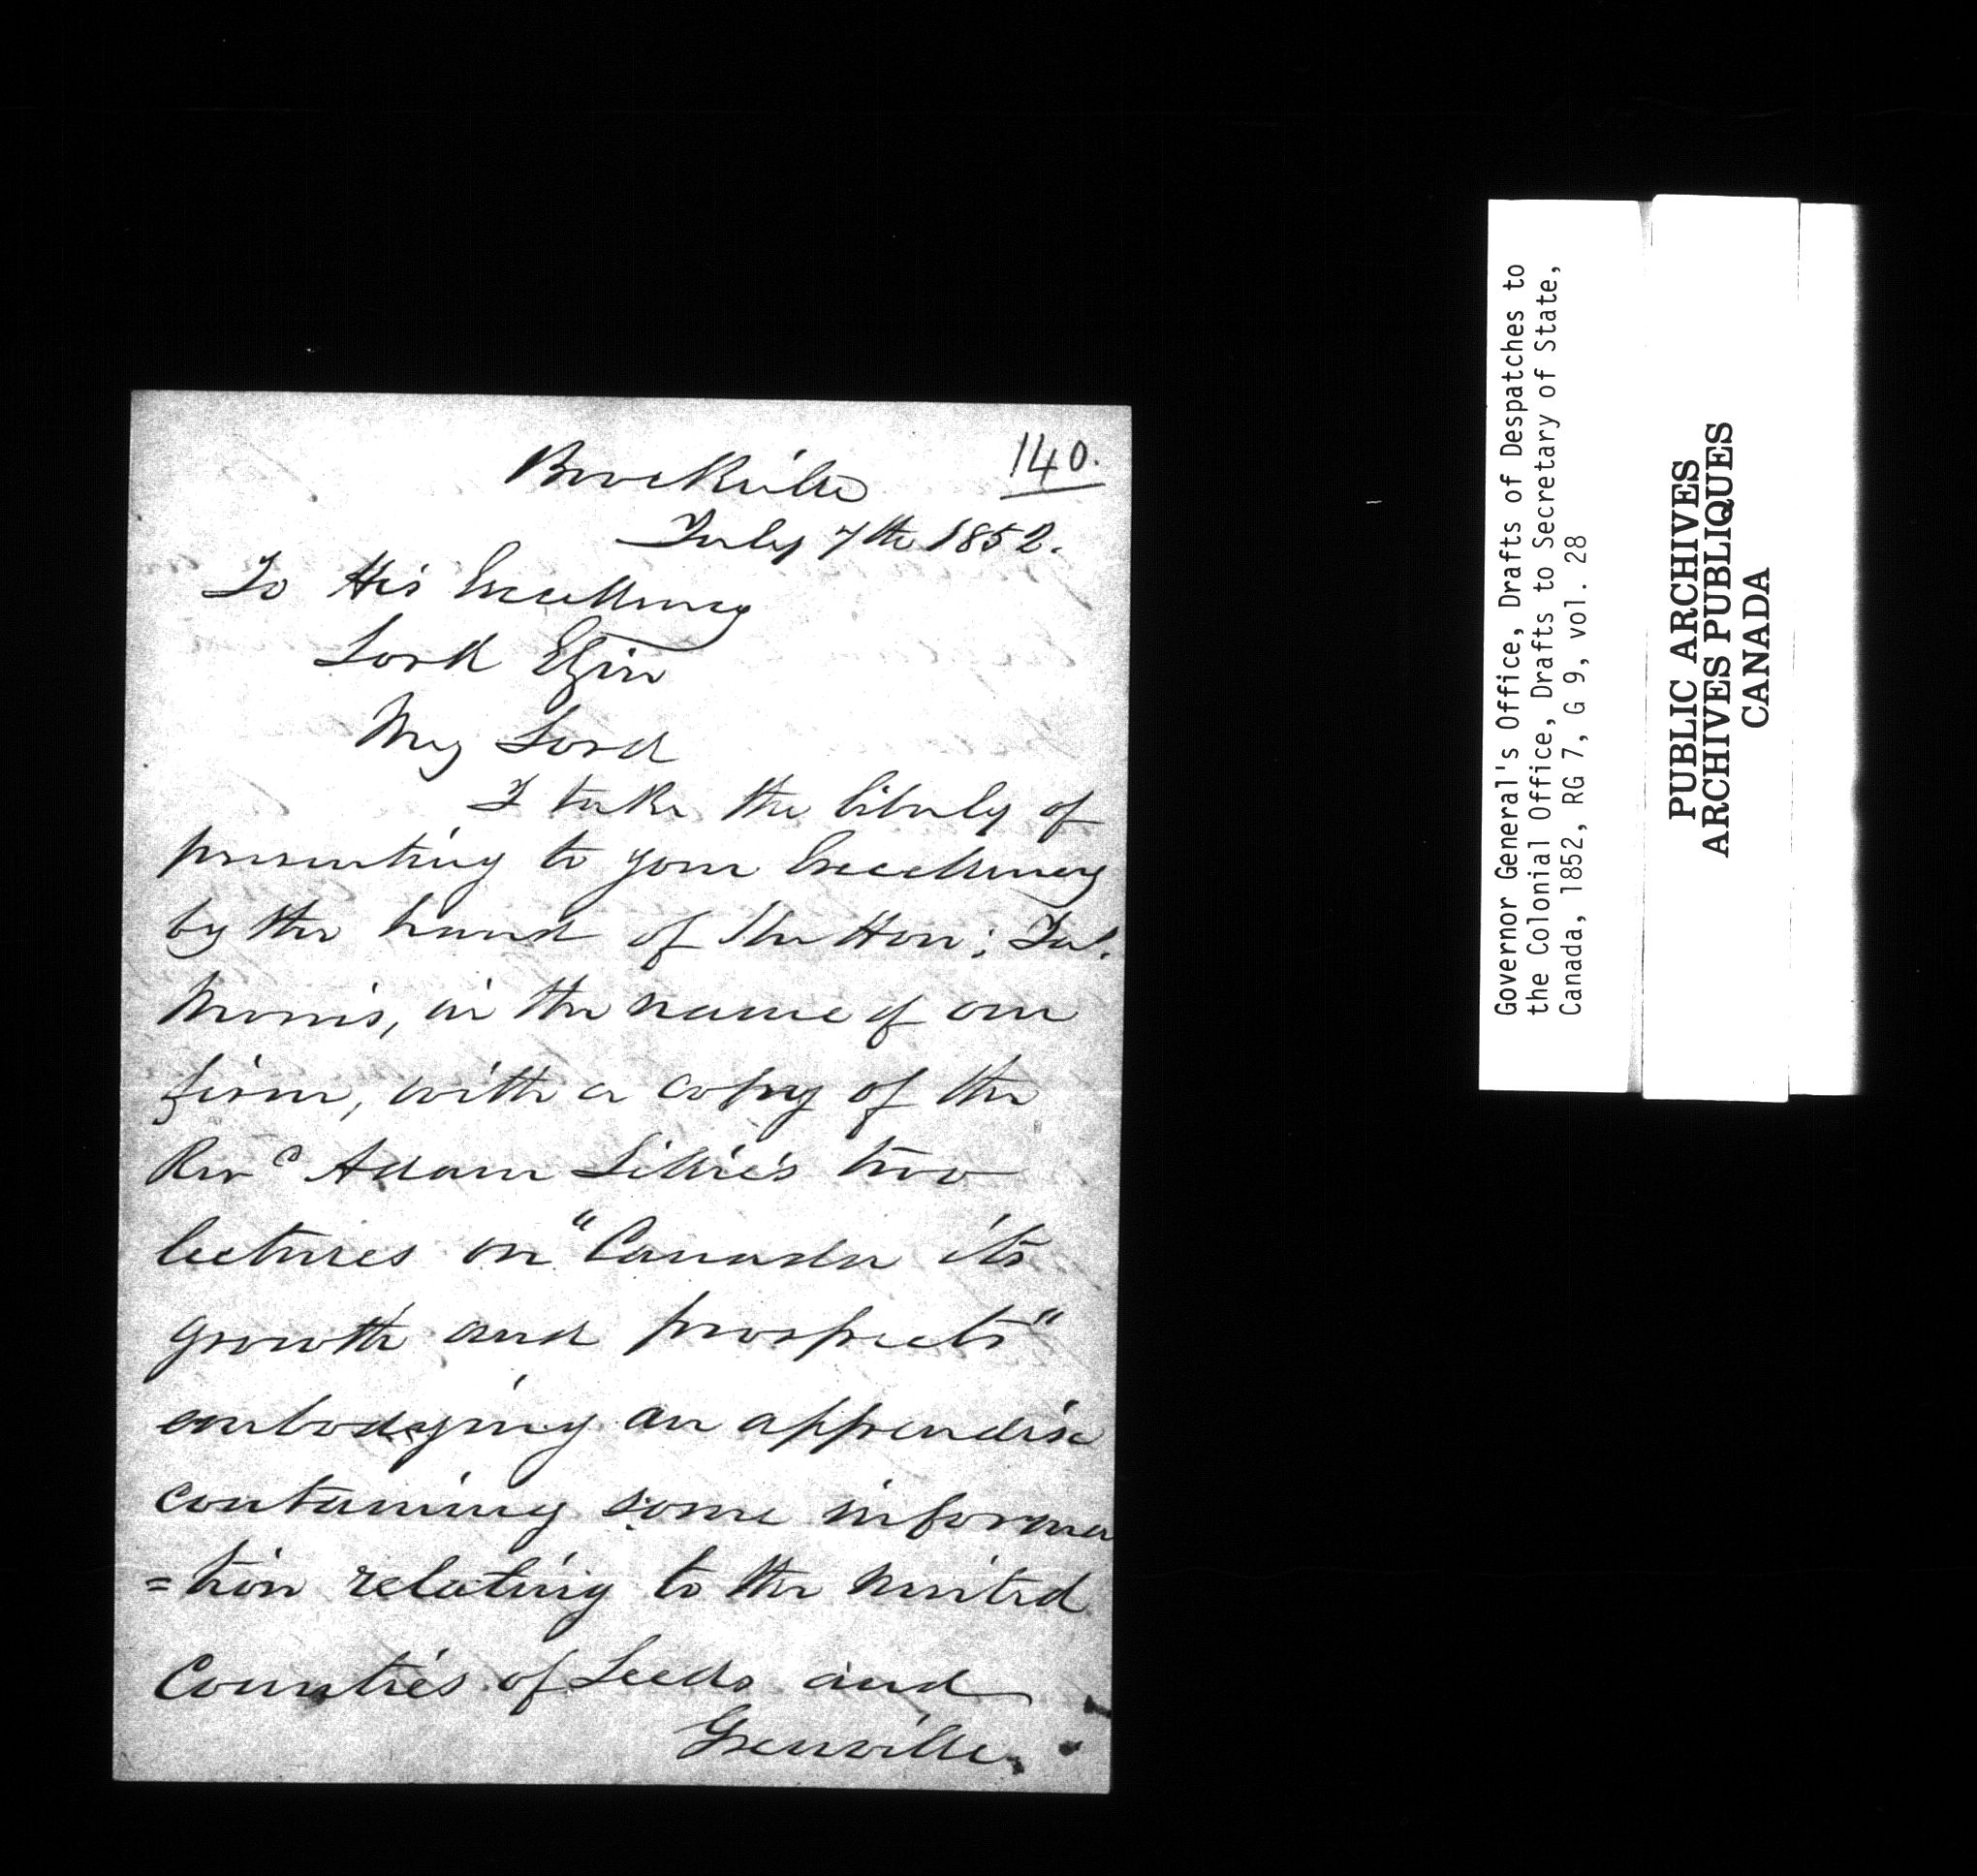 140.
Brockville
July 7th 1852.
To His Excellency
Lord Elgin
My Lord
I take the liberty of
presenting to your Excellency
by the hand of the Hon: Jas.
Morris, in the name of our
firm, with a copy of the
Revd Adam Lillie's two
lectures on "Canada its
growth and prospects"
embodying an appendix
containing some informa
=tion relating to the united
Counties of Leeds and
Grenville.
Governor General's Office, Drafts of Despatches to
the Colonial Office, Drafts to Secretary of State,
Canada, 1852, RG 7, G 9, vol. 28
PUBLIC ARCHIVES
ARCHIVES PUBLIQUES
CANADA